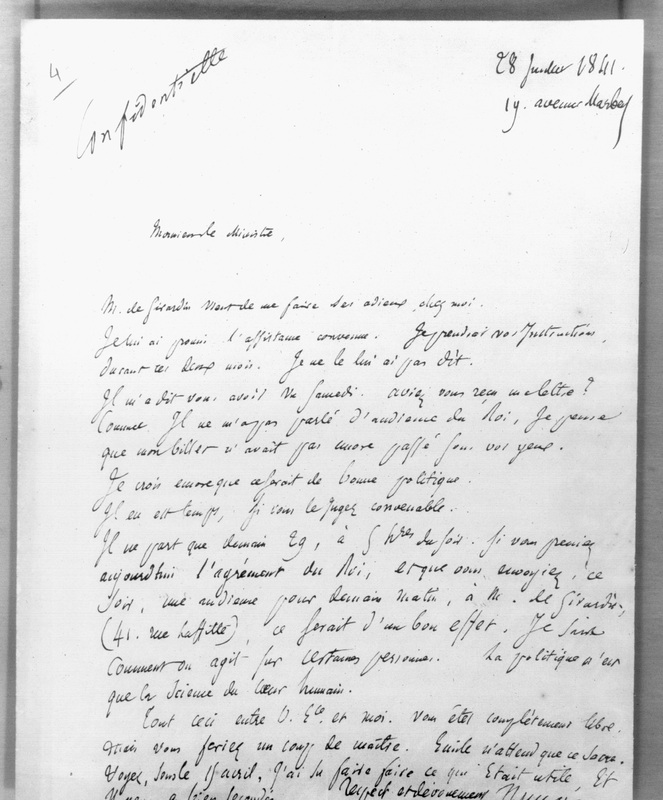 4
Confidentielle
28 Juillet 1841.
19. avenue Marbeuf
Monsieur le Ministre,
M. de Girardin vient de me faire ses adieux, chez moi.
Je lui ai promis l'assistance convenue. Je prendrai vos Instructions,
durant ces deux mois. Je ne le lui ai pas dit.
Il m'a dit vous avoir vu Samedi. aviez vous reçu ma lettre?
Comme Il ne m'a pas parlé d'audience du Roi, Je pense
que mon billet n'avait pas encore passé sous vos yeux.
Je crois encore que ce serait de bonne politique.
Il en est temps, Si vous le Jugez convenable.
Il ne part que demain 29, à 5 hres du soir. Si vous preniez
aujourdhui l'agrément du Roi, et que vous envoyiez, ce
soir, une audience pour demain matin, à M. de Girardin,
(41. rue Laffitte), ce serait d'un bon effet. Je sais
comment on agit sur certaines personnes. La politique n'est
que la Science du cœur humain.
Tout ceci entre V. Ece. et moi. vous êtes complètement libre.
mais vous feriez un coup de maître. Emile n'attend que ce
Voyez, 15 avril, J'ai su faire faire ce qui Etait utile, Et
Respect et dévouement